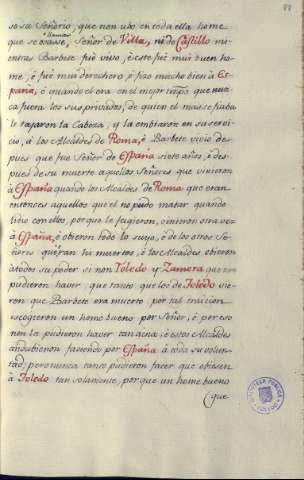 so su Señorio, que non uvo en toda ella home
que se llamase, Señor de Villa, ni de Castillo mi-
entras Barbete fué vivo, è este fuè mui buen ho-
me, è fuè mui derechero, è fizo mucho bien à Es-
paña, è quando el era en el mejor tiempo que nun-
ca fuera los sus privados, de quien el mas se fiaba
le tajaron la Cabeza; y la embiaron en su servi-
cio, à los Alcaldes de Roma, è Barbete vivio des-
pues que fue Señor de España siete años, è des-
pues de su muerte aquellos Señores que vinieron
à España quando los Alcaldes de Roma que eran
entonces aquellos que el no pudo matar quando
lidio con ellos, porque le fugieron, vinieron otra vez
à España, è obieron todo lo suyo, è de los otros Se-
ñores que eran ya muertos; è los Alcaldes obieron
à todos su poder si non Toledo y Zamora, que non
pudieron haver, que tanto que los de Toledo vie-
ron que Barbete era muerto por tal traicion
escogieron un home bueno por Señor, è por eso
non la pudieron haver tan aína; è estos Alcaldes
andubieron faciendo por España à toda su volun-
tad, pero nunca tanto pudieron facer que obiesen
à Toledo tan solamente, porque un home bueno
que